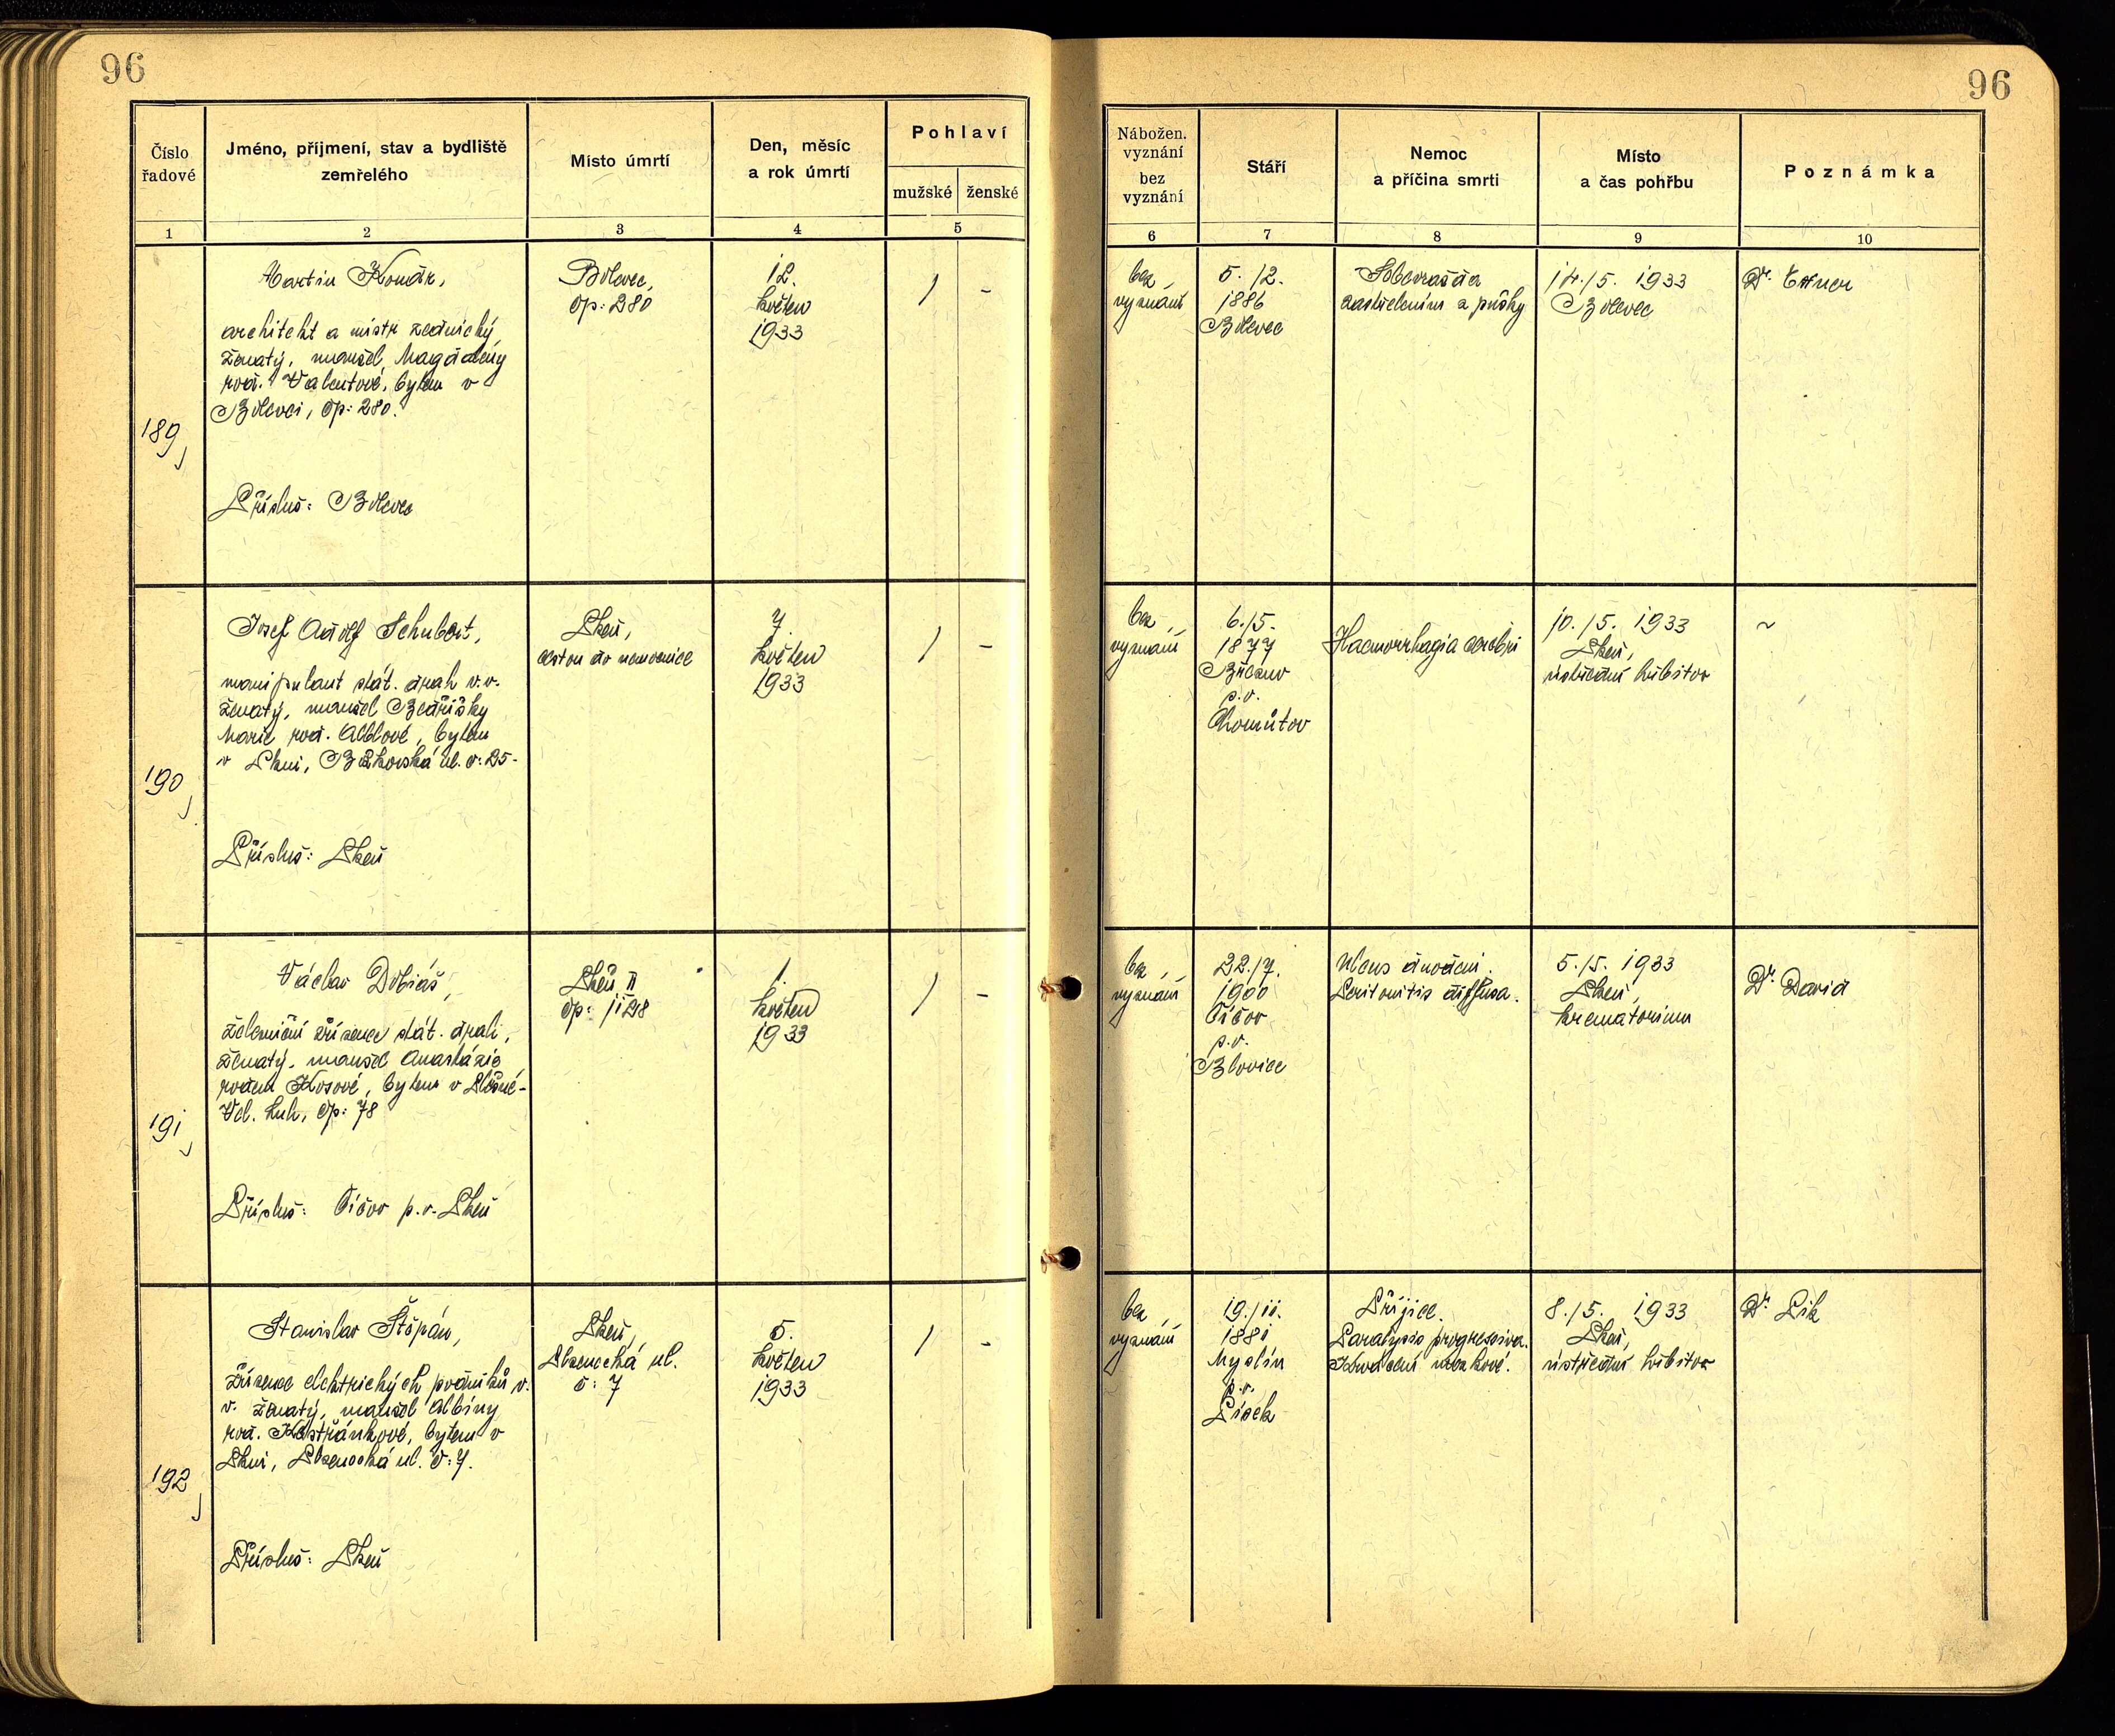 96
96
Číslo
řadové
Jméno, příjmení, stav a bydliště
zemřelého
Místo úmrtí
Den, měsíc
a rok úmrtí
Pohlaví
mužské
ženské
Nábožen.
vyznání
bez
vyznání
Stáří
Nemoc
a příčina smrti
Místo
a čas pohřbu
Poznámka
1
2
3
4
5
6
7
8
9
10
189
Martin Konár,
architekt a mistr zednický,
ženatý, manžel Magdaleny
rod. Valentové, bytem v
Bolevci, čp: 280.
Přísluš: Bolevec
Bolevec,
čp: 280
12.
květen
1933
/
-
bez
vyznání
5. 12.
1886
Bolevec
Sebevražda
zastřelením z pušky
14./5. 1933
Bolevec
Dr.
190
Josef Adolf Schubert,
manipulant stát. drah v.v.
ženatý, manžel Bedřišky
Marie rod. bytem
v Plzni, ul. č: 25-
Přísluš: Plzeň
Plzeň,
cestou do nemocnice
7.
květen
1933
/
-
bez
vyznání
6./5.
1877
p.o.
Chomůtov
Haemorrhagia cerebri
10./5. 1933
Plzeň,
ústřední hřbitov
~
191
Václav Dobiáš,
železniční zřízenec stát. drah,
ženatý, manžel Anastázie
rozen Kosové, bytem v Plzni-
Vel. Luh, čp: 78
Přísluš: Čičov p.o. Plzeň
Plzeň II
čp: 1128
1.
květen
1933
/
-
bez
vyznání
22./7.
1900
Čičov
p.o.
Blovice
Ulcus duodeni.
Peritonitis diffusa.
5./5. 1933
Plzeň,
krematorium
Dr. David
192
Stanislav Štěpán,
zřízenec elektrických podniků v.
v. ženatý, manžel Albíny
rod. bytem v
Plzni, Plzenecká ul. č: 7.
Přísluš: Plzeň
Plzeň,
Plzenecká ul.
č: 7
5.
květen
1933
/
-
bez
vyznání
19./11.
1881
Myslín
p.o.
Písek
Příjice.
Paralysis progressiva.
Krvácení mozkové.
8./5. 1933
Plzeň,
ústřední hřbitov
Dr. Pik